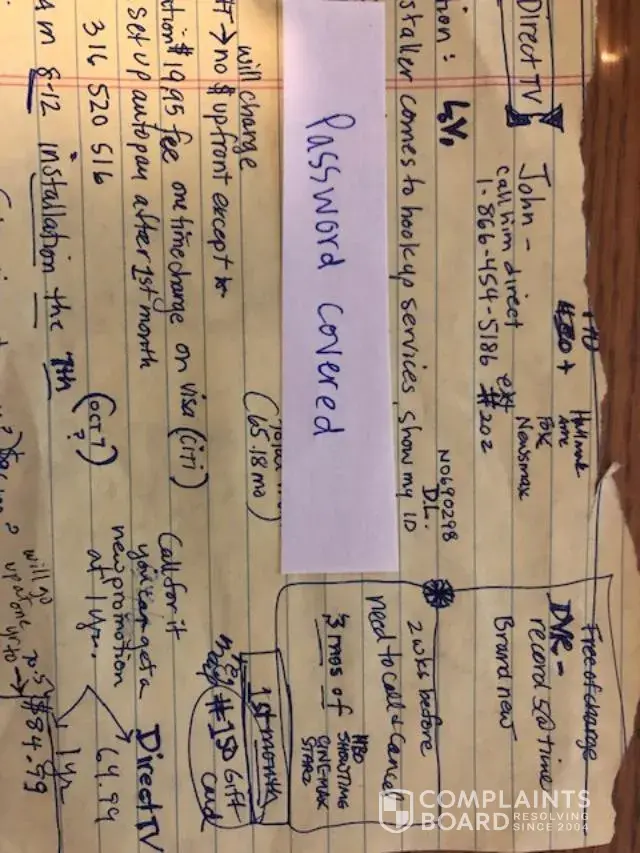 Free of charge
DVR -
record 5@time
Brand new
Hallmark
AMC
Fox
Newsmax
Direct TV
John -
call him direct
1-866-454-5186 ext
#202
N0690298
D.L.
staller comes to hook up services, show my ID
2 wks before
need to call & cancel
3 mos of
HBO
SHOWTIME
CINEMAX
STARZ
Password covered
(65.18 mo)
1st month
will charge
→ no $ upfront except to
$19.95 fee one time charge on visa (citi)
set up autopay after 1st month
gift
card
Call for it
you can get a
new promotion
at 1 yr.
Direct TV
64.99
1 yr
316 520 516
(OCT 7
?)
8-12 installation the 7th
will go
up after
yr to → $84.99
COMPLAINTS
BOARD RESOLVING
SINCE 2004